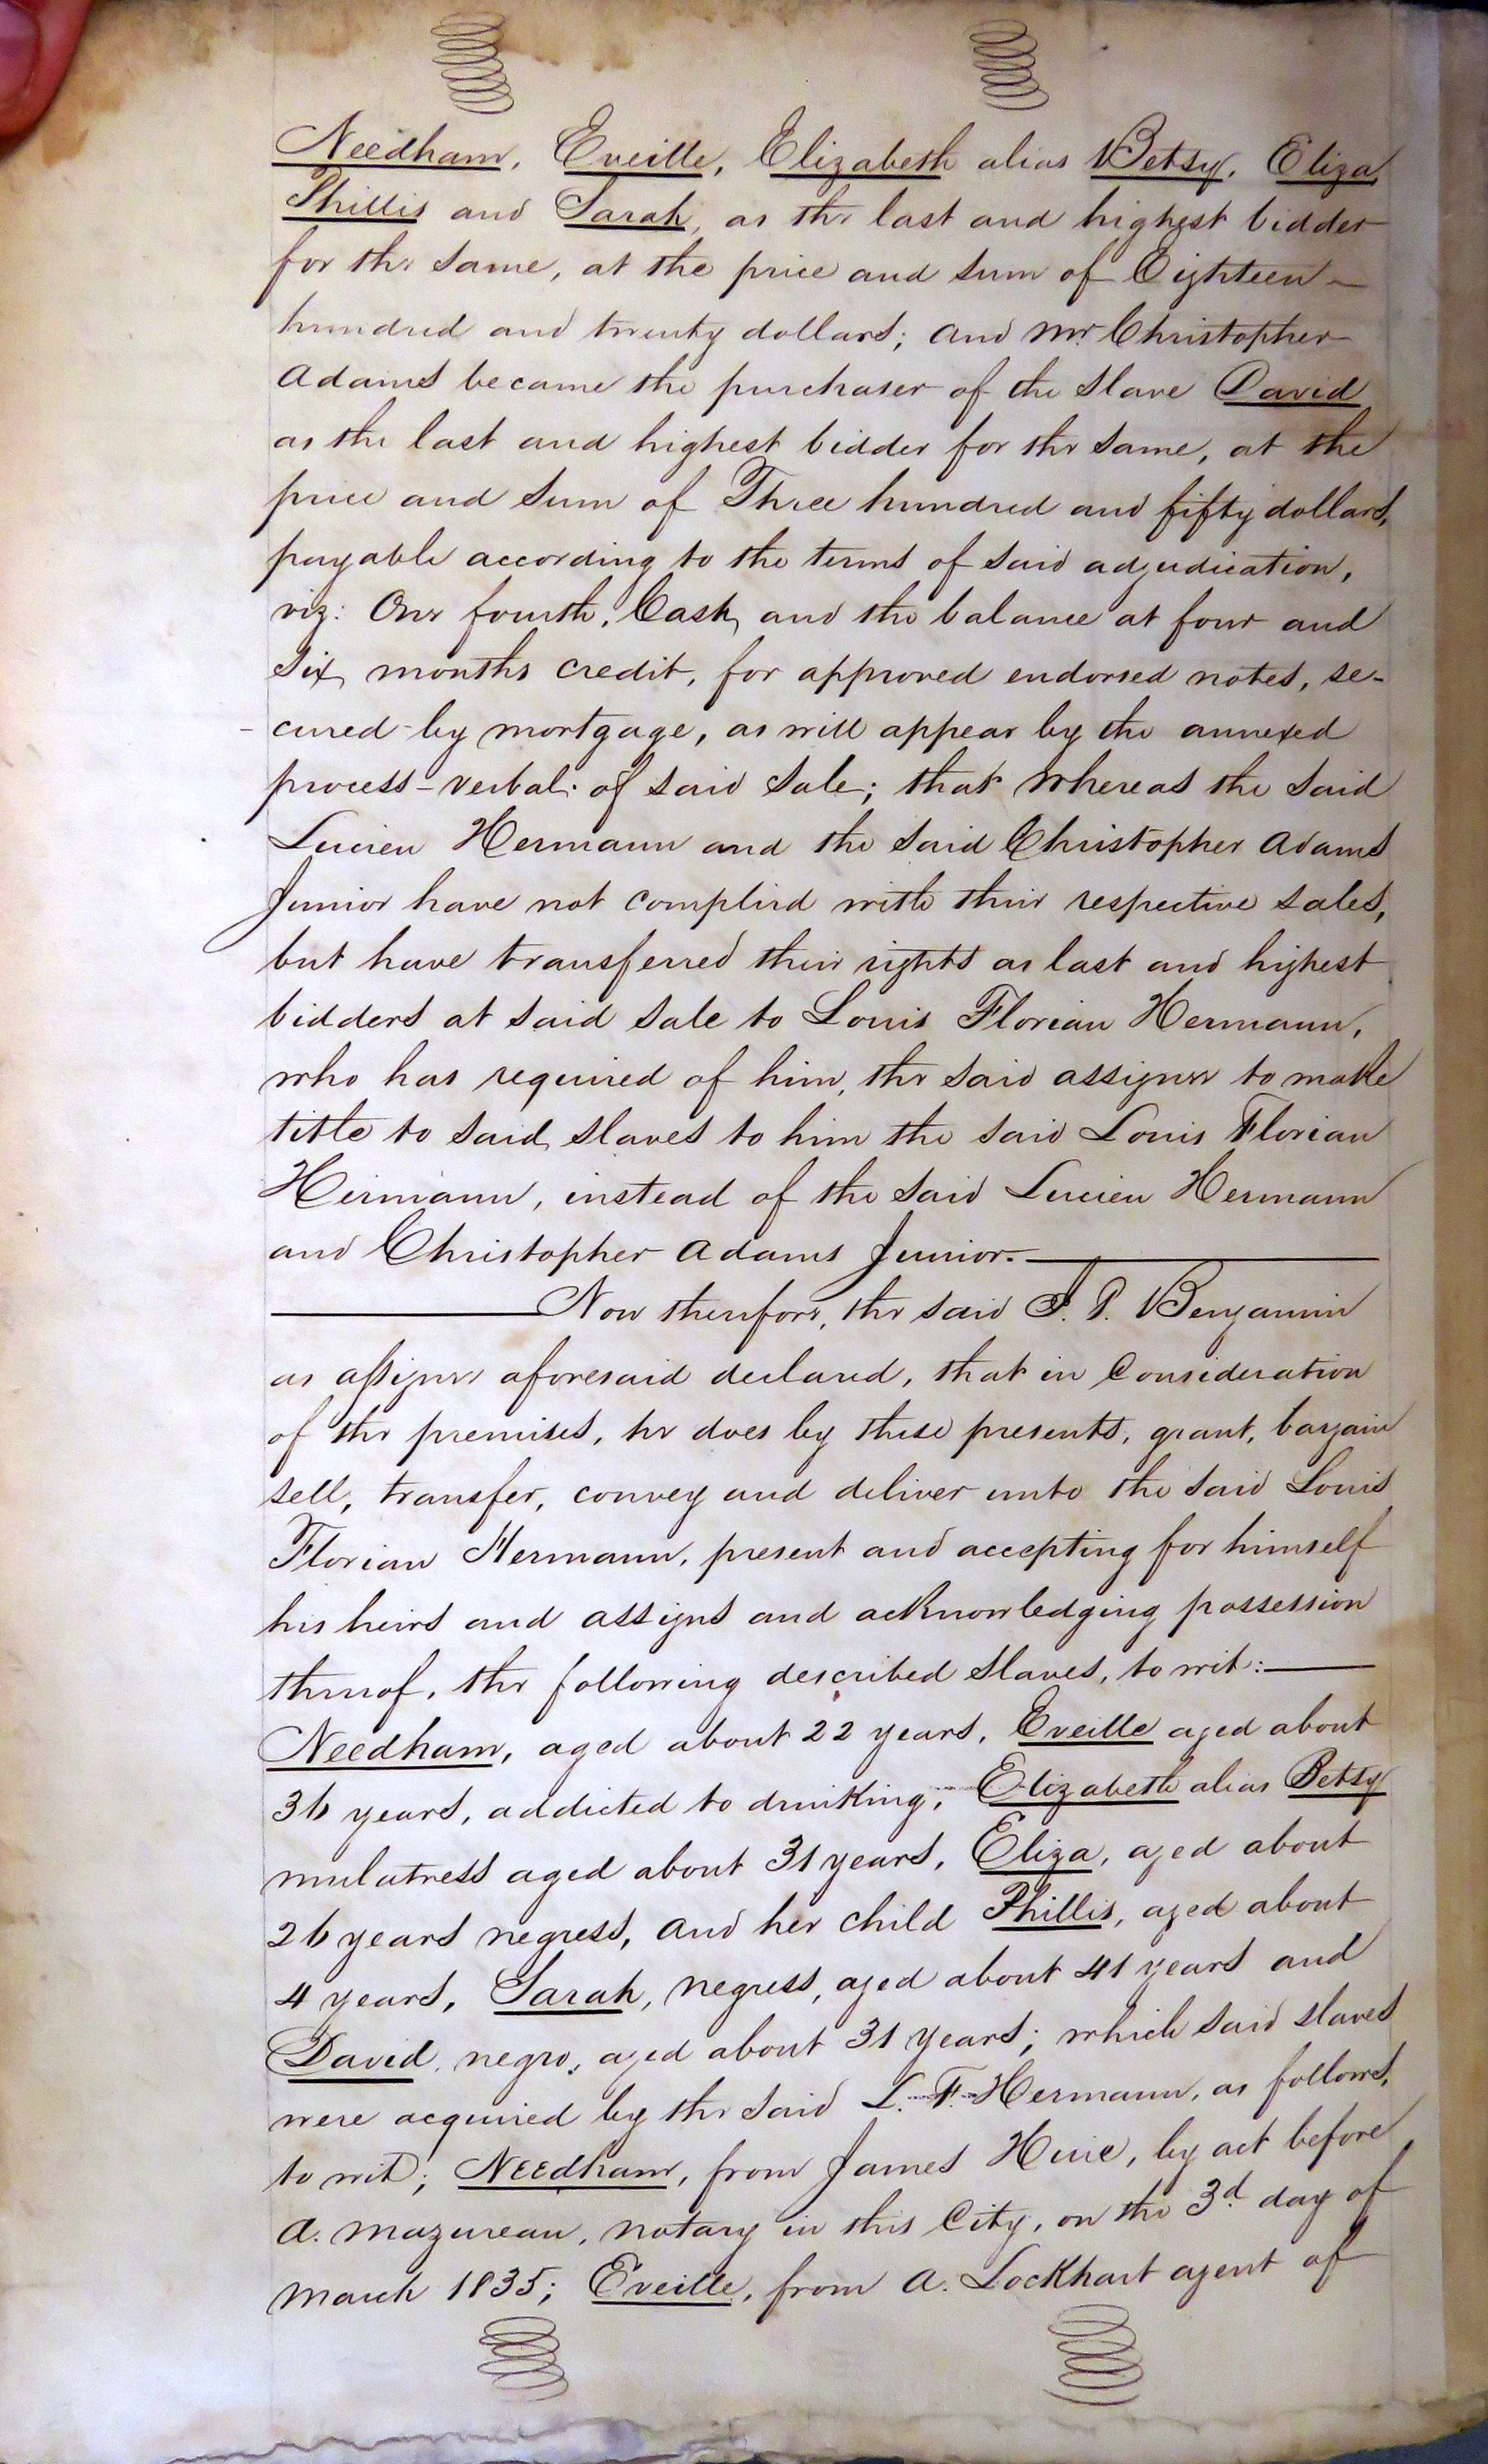 Needham, Eveille, Elizabeth alias Betsy, Eliza,
Phillis and Sarah, as the last and highest bidder
for the same, at the price and sum of Eighteen
hundred and twenty dollars; and Mr. Christopher
Adams became the purchaser of the slave David
as the last and highest bidder for the same, at the
price and sum of Three hundred and fifty dollars,
payable according to the terms of said adjudication,
viz: One fourth, Cash, and the balance at four and
six months credit, for approved endorsed notes, se-
-cured by mortgage, as will appear by the annexed
process-verbal of said sale; that whereas the said
Lucien Hermann and the said Christopher Adams
Junior have not complied with their respective sales,
but have transferred their rights as last and highest
bidders at said sale to Louis Florian Hermann,
who has required of him, the said assignee to make
title to said slaves to him the said Louis Florian
Hermann, instead of the said Lucien Hermann
and Christopher Adams Junior.
Now therefore, the said J. P. Benjamin
as assignee aforesaid declared, that in Consideration
of the premises, he does by these presents, grant, bargain
sell, transfer, convey and deliver unto the said Louis
Florian Hermann, present and accepting for himself
his heirs and assigns and acknowledging possession
thereof, the following described slaves, to wit:
Needham, aged about 22 years, Eveille aged about
36 years, addicted to drinking, Elizabeth alias Betsy
mulatress aged about 31 years, Eliza, aged about
26 years negress, and her child Phillis, aged about
4 years, Sarah, negress, aged about 41 years and
David, negro, aged about 31 years; which said slaves
were acquired by the said L. F. Hermann, as follows,
to wit; Needham, from James Huie, by act before
A. Mazureau, notary in this City, on the 3d. day of
March 1835; Eveille, from A. Lockhart agent of